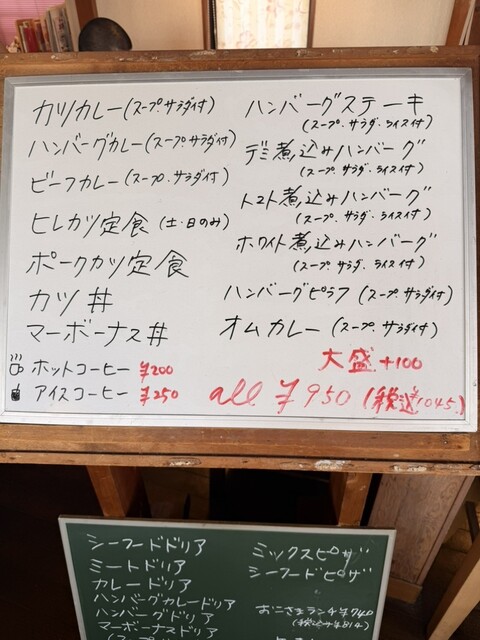 カツカレー(スープ.サラダ付)
ハンバーグカレー(スープ.サラダ付)
ビーフカレー(スープ.サラダ付)
ヒレカツ定食(土・日のみ)
ポークカツ定食
カツ丼
マーボーナス丼
ホットコーヒー ¥200
アイスコーヒー ¥250
ハンバーグステーキ
(スープ.サラダ.ライス付)
デミ煮込みハンバーグ
(スープ.サラダ.ライス付)
トマト煮込みハンバーグ
(スープ.サラダ.ライス付)
ホワイト煮込みハンバーグ
(スープ.サラダ.ライス付)
ハンバーグピラフ(スープ.サラダ付)
オムカレー(スープ.サラダ付)
大盛+100
all ¥950(税込¥1045)
シーフードドリア
ミートドリア
カレードリア
ハンバーグカレードリア
ハンバーグドリア
マーボーナスドリア
ミックスピザ
シーフードピザ
おこさまランチ¥740
(税込¥814)